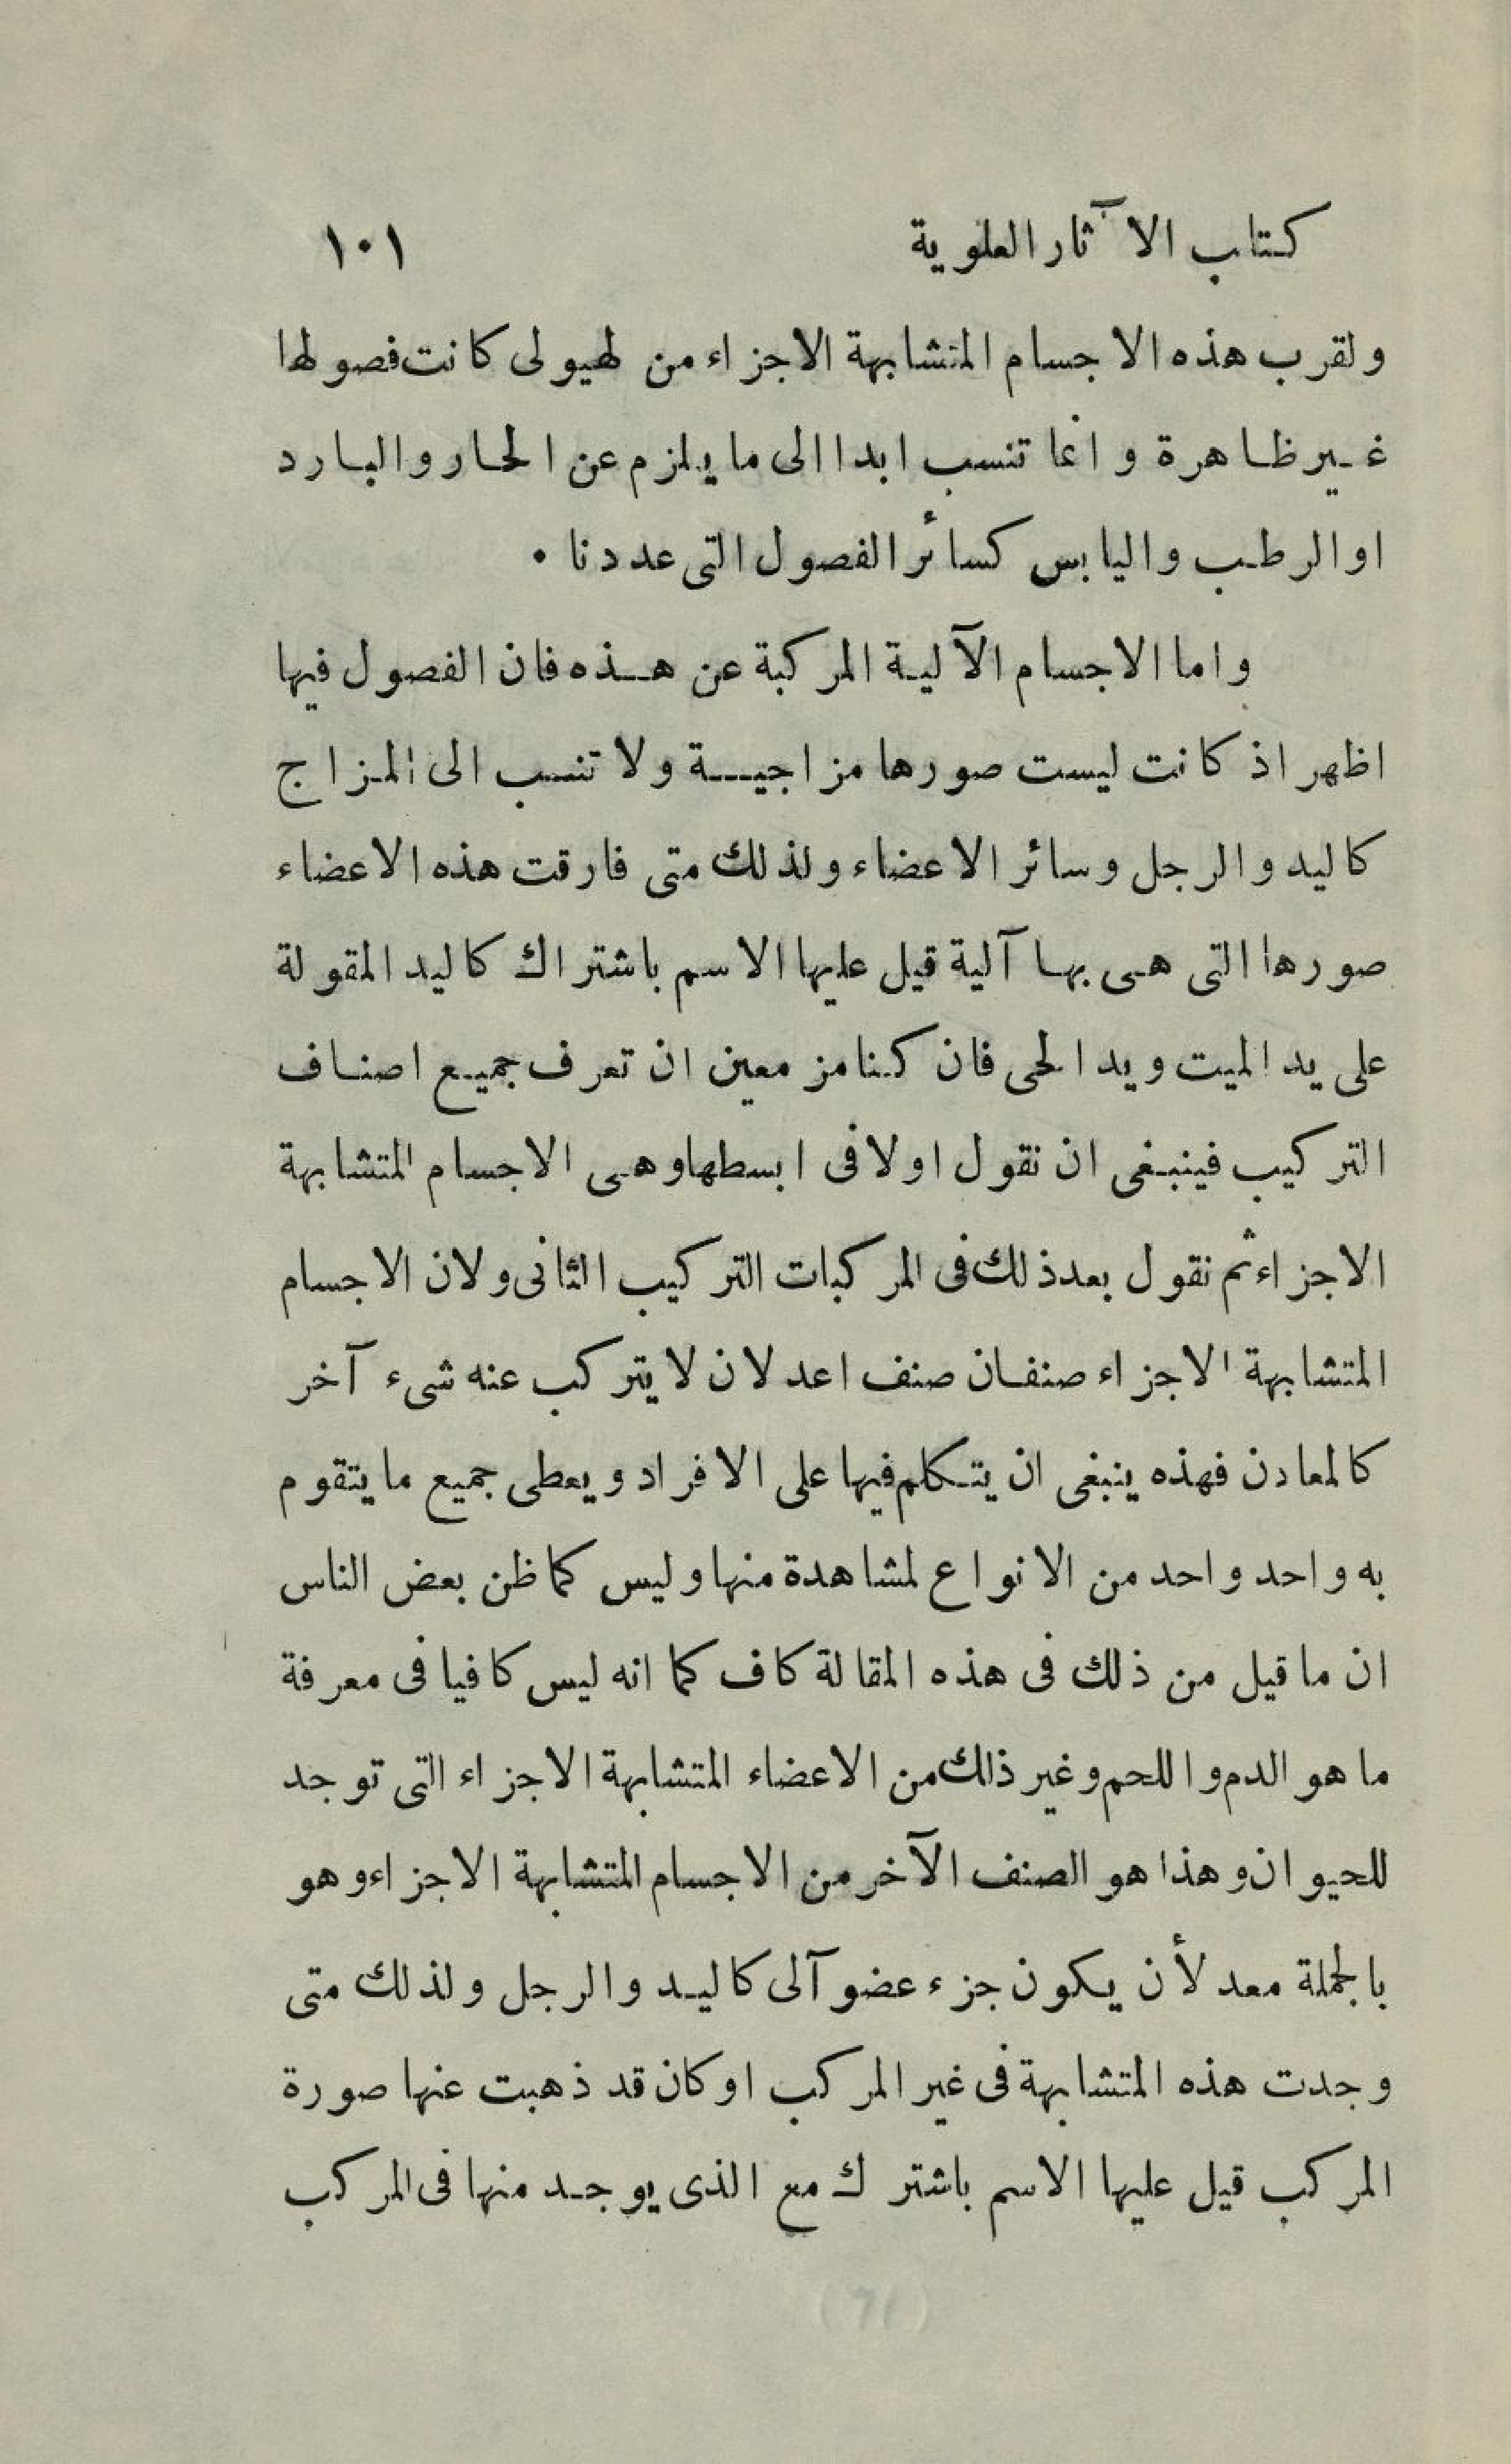 كتاب الآثار العلوية ١٠١
ولقرب هذه الاجسام المتشابهة الاجزاء من لهيولى كانت فصولها
غير ظاهرة وانما تنسب ابدا الى ما يلزم عن الحار والبارد
او الرطب واليابس كسأئر الفصول التى عددنا ٠
واما الاجسام الآلية المركبة عن هذه فان الفصول فيها
اظهر اذ كانت ليست صورها مزاجية ولا تنسب الى المزاج
كاليد والرجل وسائر الاعضاء ولذلك متى فارقت هذه الاعضاء
صورها التى هى بها آلية قيل عليها الاسم باشتراك كاليد المقولة
على يد الميت ويد الحى فان كنا مزمعين ان تعرف جميع اصناف
التركيب فينبغى ان نقول اولا فى ابسطها وهى الاجسام المتشابهة
الاجزاء ثم نقول بعد ذلك فى المركبات التركيب الثانى ولان الاجسام
المتشابهة الاجزاء صنفان صنف اعد لان لا يتركب عنه شىء آخر
كالمعادن فهذه ينبغى ان يتكلم فيها على الافراد ويعطى جميع ما يتقوم
به واحد واحد من الانواع لمشاهدة منها وليس كما ظن بعض الناس
ان ما قيل من ذلك فى هذه المقالة كاف كما انه ليس كافيا فى معرفة
ما هو الدم واللحم وغير ذلك من الاعضاء المتشابهة الاجزاء التى توجد
للحيوان وهذا هو الصنف الآخر من الاجسام المتشابهة الاجزاء وهو
بالجملة معد لأن يكون جزء عضو آلى كاليد والرجل ولذلك متى
وجدت هذه المتشابهة فى غير المركب او كان قد ذهبت عنها صورة
المركب قيل عليها الاسم باشترك مع الذى يوجد منها فى المركب